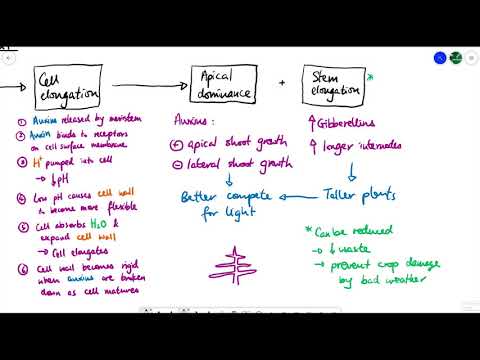 Cell
elongation
Apical
dominance
+
Stem
elongation
*
① Auxins released by meristem
② Auxin binds to receptors
on cell surface membrane
③ H⁺ pumped into cell
→ ↓pH
④ Low pH causes cell wall
to become more flexible
⑤ Cell absorbs H₂O &
expand cell wall
→ Cell elongates
⑥ Cell wall becomes rigid
when auxins are broken
down as cell matures
Auxins:
⊕ apical shoot growth
⊖ lateral shoot growth
Better compete
for light
↑ Gibberellins
↑ longer internodes
Taller plants
* Can be reduced
→ ↓ waste
→ prevent crop damage
by bad weather